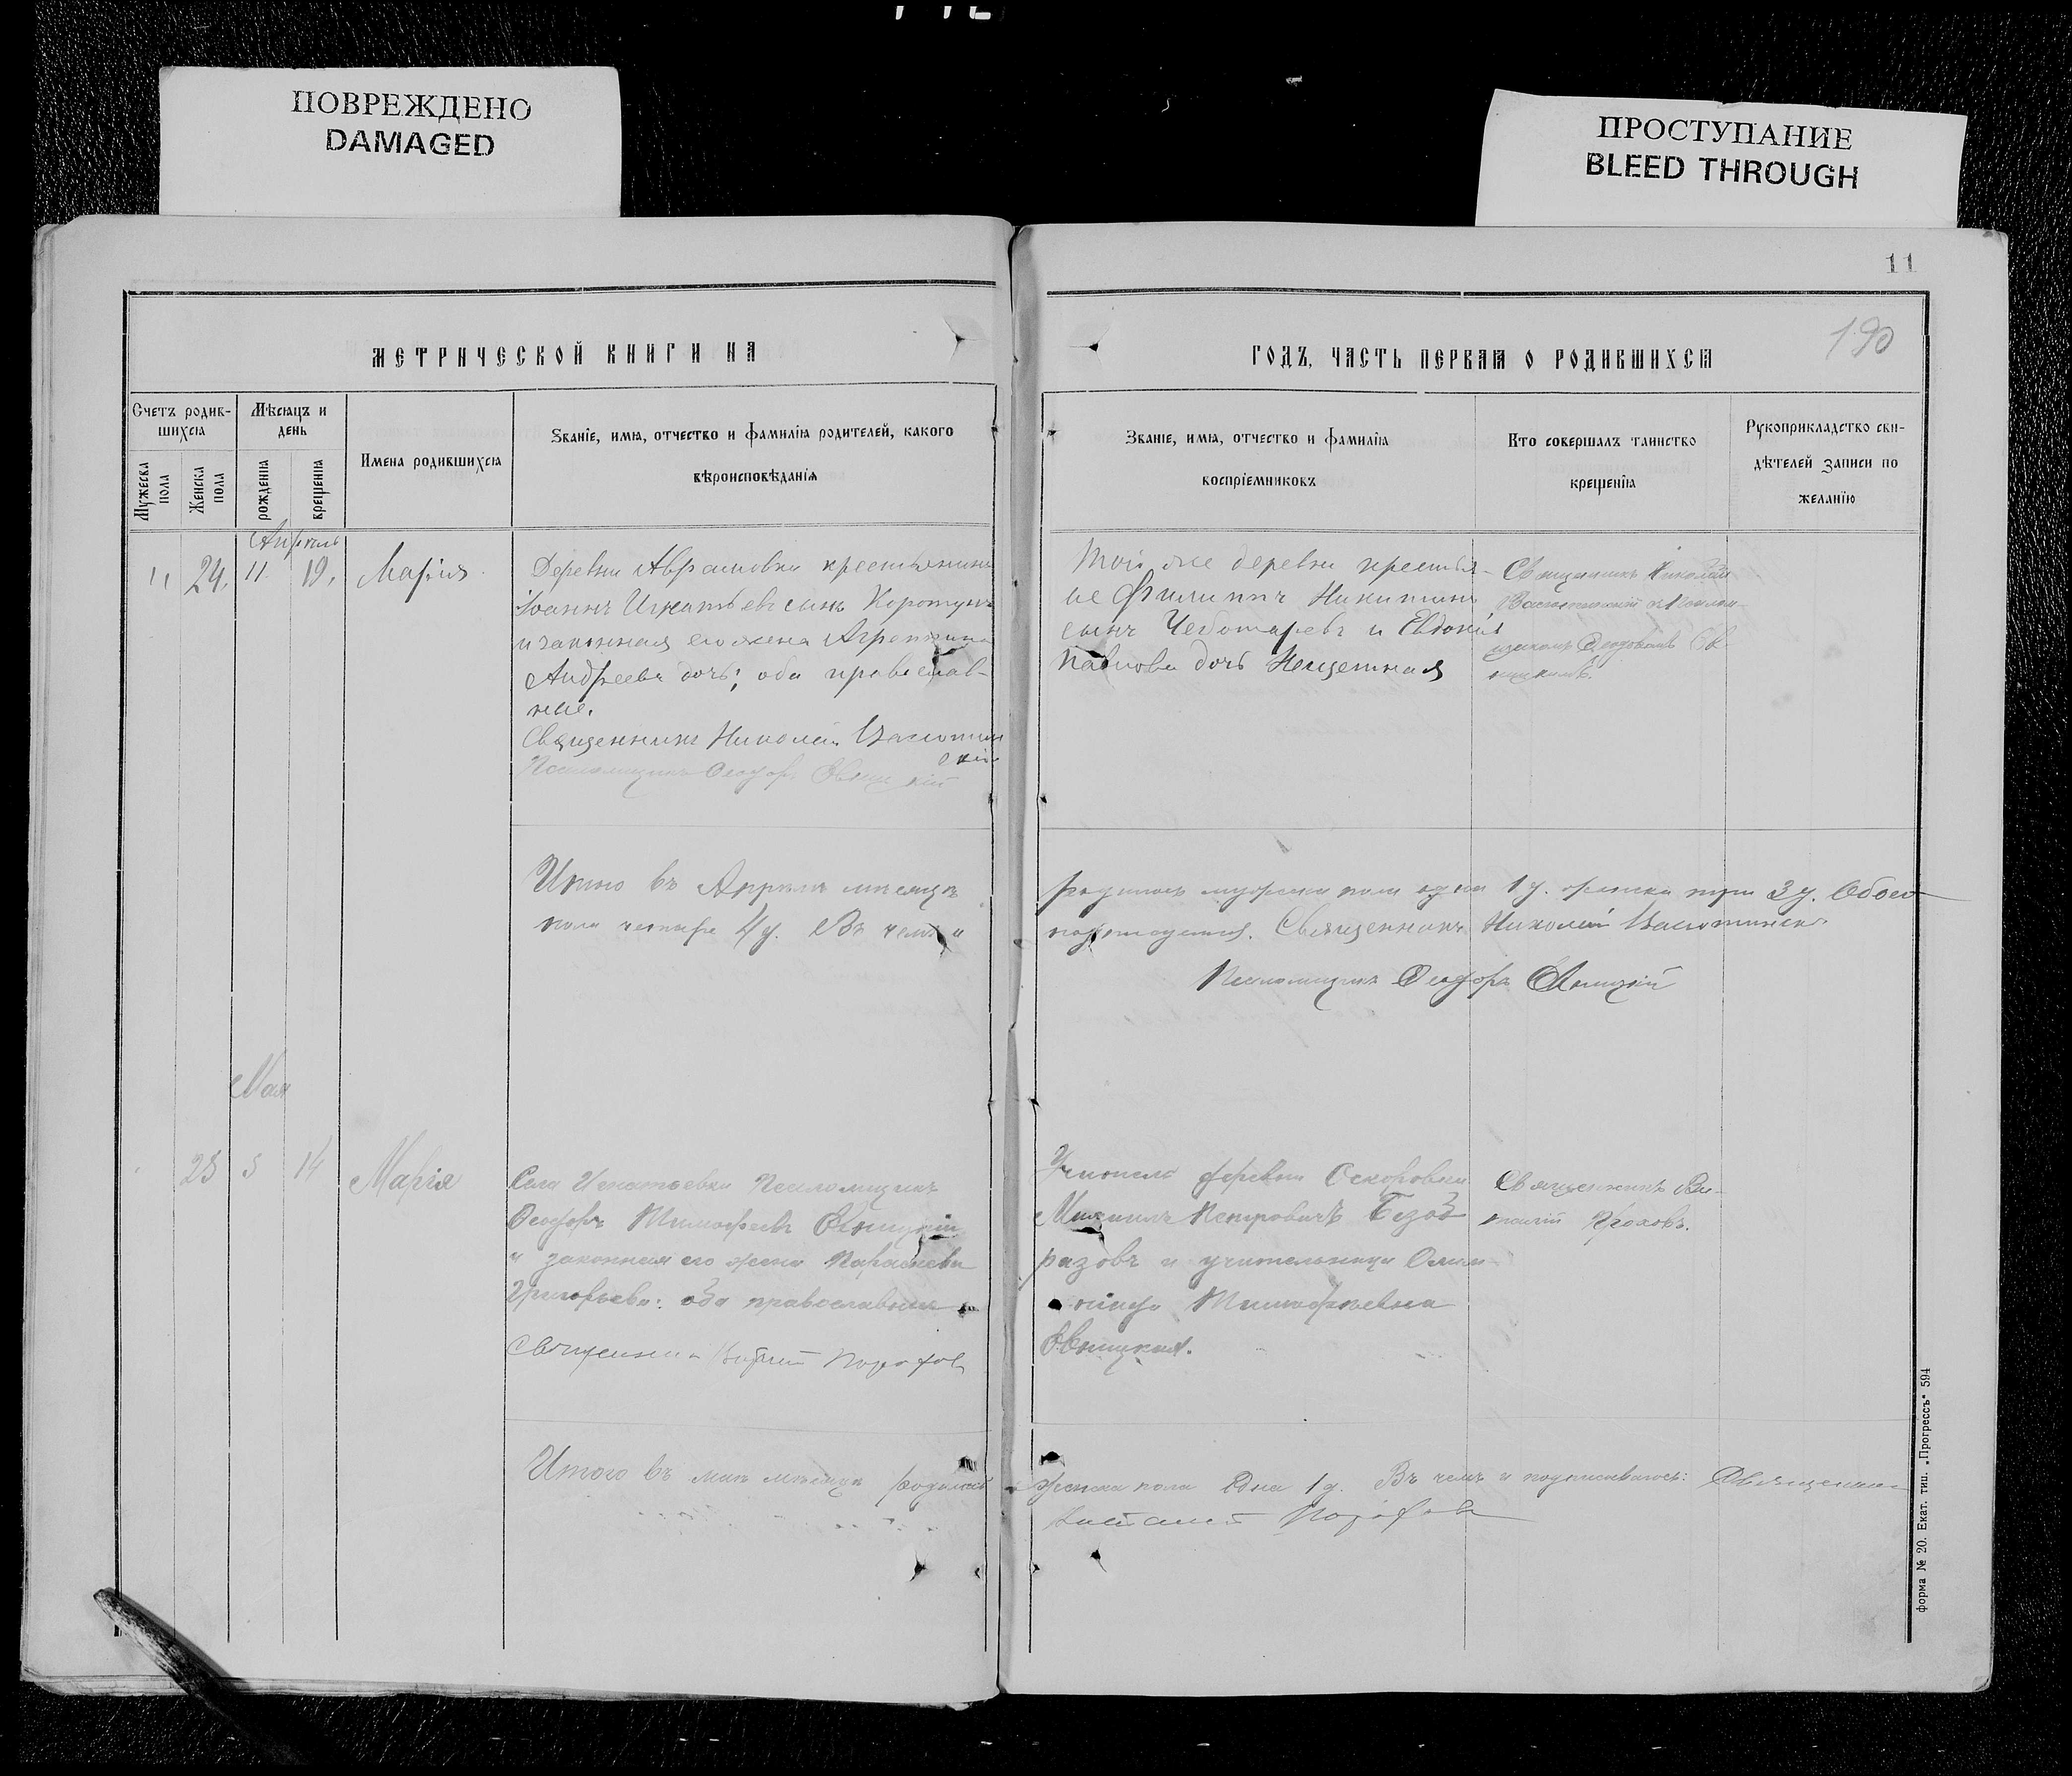 ПОВРЕЖДЕНО
DAMAGED
ПРОСТУПАНИЕ
BLEED THROUGH
11
190
МЕТРИЧЕСКОЙ КНИГИ НА
ГОДЪ, ЧАСТЬ ПЕРВАЯ О РОДИВШИХСЯ
Счетъ родив-
шихся
Мѣсяцъ и
день
Мужеска
пола
Женска
пола
рожденія
крещенія
Имена родившихся
Званіе, имя, отчество и фамилія родителей, какого
вѣроисповѣданія
Званіе, имя, отчество и фамилія
воспріемниковъ
Кто совершалъ таинство
крещенія
Рукоприкладство сви-
дѣтелей записи по
желанію
Апрель
24. 11. 19. Марія
Деревни Аврамовки крестьянинъ
Іоаннъ Игнатьевъ сынъ Коротунъ
и законная его жена Агрепина
Андреева дочь; оба православ-
ные.
Священникъ Николай Васютин
скій
Псаломщикъ Ѳеодоръ Свѣницкій
Той же деревни крестья-
не Филиппъ Никитинъ
сынъ Чеботаревъ и Евдокія
Павлова дочь Нещетная
Священникъ Николай
Васютинскій съ Псалом-
щикомъ Ѳеодоромъ
Итого въ Апрѣлѣ мѣсяцѣ родилось мужска пола одинъ 1 д. женска три 3 д. Обоего
пола четыре 4 д. Въ чемъ и подписуемся. Священникъ Николай Васютинскі
Псаломщикъ Ѳеодоръ
Мая
25 5 14 Марія
Села Игнатьевки Псаломщикъ
Ѳеодоръ Тимофеевъ
и законная его жена Параскева
Григорьева: оба православные
Священникъ
Учитель деревни
Михаилъ Петровичъ Безоб
разовъ и учительница Олим
піада Тимофѣевна
Священникъ Ви-
талій
Итого въ маѣ мѣсяцѣ родилась женска пола одна 1 д. Въ чемъ и подписываюсь: Священникъ
Виталій
форма № 20. Екат. тип. „Прогрессъ“ 594